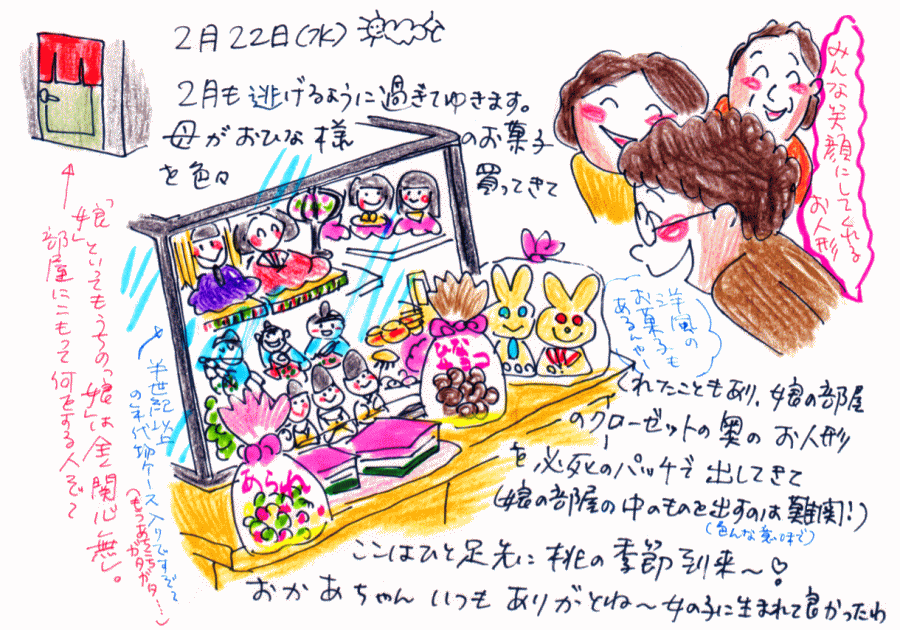 2月22日(水)
2月も逃げるように過ぎてゆきます。
母がおひな様のお菓子
を色々買ってきて
くれたこともあり、娘の部屋
のクローゼットの奥のお人形
を必死のパッチで出してきて
(娘の部屋の中のものを出すのは難関!)
(色んな意味で)
ここはひと足先に桃の季節到来～♡
おかあちゃんいつもありがとね～女の子に生まれて良かったわ
みんな笑顔にしてくれる
お人形
洋風の
お菓子も
あるんや
ひな
あられ
半世紀以上
の年代物ケース入りですぞ
(もうあちこちガタガタ…)
「娘」といってもうちの「娘」は全く関心無し。
部屋にこもって何をする人ぞ